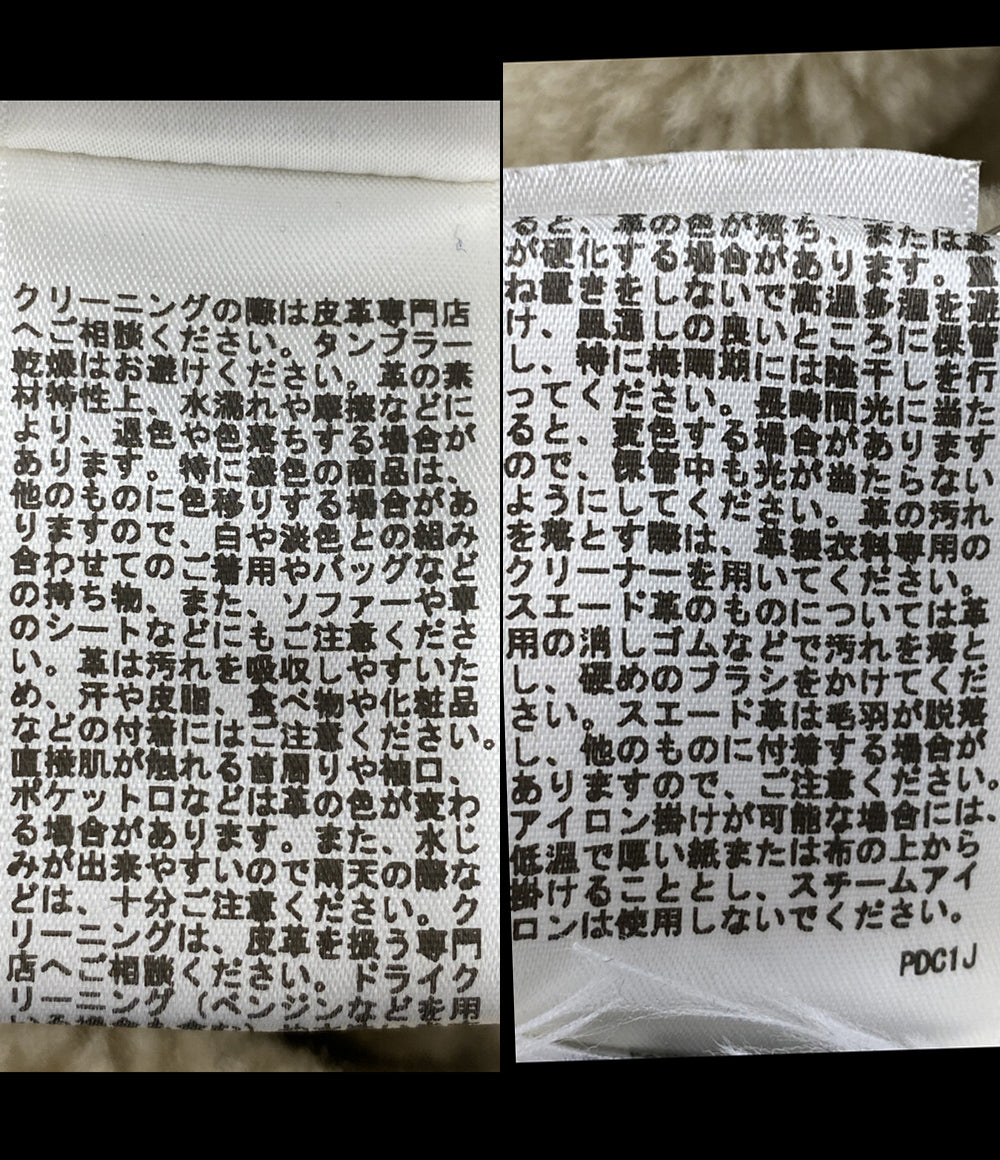 クリーニングの際は皮革専門店
へご相談ください。タンブラー
乾燥はお避けください。革の素
材特性上、水濡れや摩擦などに
より、退色や色落ちする場合が
あります。特に濃色の商品は、
他のものに色移りする場合があ
りますので、白や淡色との組み
合わせてのご着用やバッグなど
の持ち物、また、ソファーや車
のシートなどにもご注意くださ
い。革は汚れを吸収しやすいた
め、汗や皮脂、食べ物や化粧品
などの付着にはご注意ください。
直接肌が触れる首周りや袖口、
ポケットロなどは革の色が変わ
る場合があります。また、水じ
みが出来やすいので雨天の際な
どは、十分ご注意ください。ク
リーニングは、皮革を扱う専門
店へご相談ください。ドライク
リーニング(ベンジンなどを用
ると、革の色が落ち、または革
が硬化する場合があります。重
ね置きをしないで高温多湿を避
け、風通しの良いところに保管
し、特に梅雨期には陰干しを行
ってください。長時間光に当た
ると、変色する場合があります
ので、保管中も光が当たらない
ようにしてください。革の汚れ
を落とす際は、革製衣料専用の
クリーナーを用いてください。
スエード革のものについては革
用の消しゴムなどで汚れを落と
し、硬めのブラシをかけてくだ
さい。スエード革は毛羽が脱落
し、他のものに付着する場合が
ありますので、ご注意ください。
アイロン掛けが可能な場合には、
低温で厚い紙または布の上から
掛けることとし、スチームアイ
ロンは使用しないでください。
PDC1J